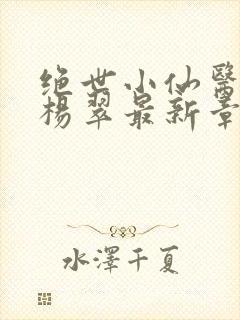 绝世小仙醫
楊翠最新章
水澤千夏